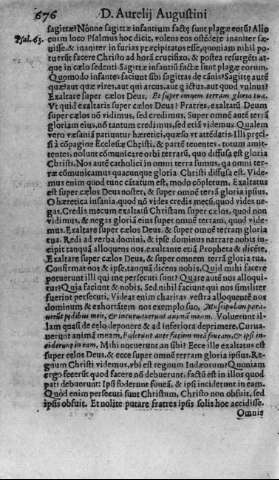 676 D. Aurelij Augustini
sagittæ? Nonne sagittæ infantium factæ sunt plagæ eorũ? Alio
Psal. 63. quem loco Psalmus hoc dicit, volens eos ostédere inaniter sæ-
uisse, & inaniter in furias præcipitatos esse, quoniam nihil po-
tuerunt facere Christo ad hoc crucifixo, & postea resurgéti at-
que in cælo sedenti Sagittæ infantiũ factæ sunt plagæ eorum.
Quomodo infantes faciunt sibi sagittas de cannis? Sagittæ autẽ
quæ? aut quæ vires, aut qui arcus, aut q̃ ictus, aut quod vulnus?
Exaltare super cælos Deus, & super omnem terram gloria tua.
Vt quid exaltaris super cælos Deus? Fratres, exaltatũ Deum
super cælos non videmus, sed credimus: super omnẽ aũt terrã
gloriam eius, nõ tantum credimus, sed etiã videmus. Qualem
vero
Christi
nolunt
Christi Nos autẽ catholici in omni terra sumus,
Christi diffusa est. Vide-
mus enim quod tunc cãtatum est, modo cõpletum. Exaltatus
est super cælos Deus noster, & super omnẽ terrã gloria ipsius,
O hæretica insania, quod nõ vides credis mecũ, quod vides ne-
gas. Credis mecum exaltatũ Christum super cælos, quod non
vidimus, & negas gloriã eius super omnem terram, quod vide-
mus. Exaltare super cælos Deus, & super omnẽ terram gloria
tua. Redi ad verba domini, & ipse dominus narrare nobis in-
cipit
Exaltare super cælos Deus, & super omnem terrã gloria tua.
Confirmat nos & ipse, tanquã dicens nobis. Quid mihi facere
potuerunt illi qui me persecuti sunt? Quare autẽ nos alloqui-
tur? Quia faciunt & nobis. Sed nihil faciunt qui nos similiter
fuerint persecuti, Videat enim charitas vestra alloquentẽ nos
dominum & exhortãtem nos exemplo suo, Muscipulam para-
uerũt pedibus meis, & incuruauerunt animã meam.
lam quasi de cælo deponere & ad inferiora deprimere. Curua-
uerunt animã meam, Foderunt ante faciem meã foueam, & ipsi in-
ciderunt in eam, Mihi nocuerunt an sibi? Ecce ille exaltatus est
super cælos Deus, & ecce super omnẽ terram gloria ipsius. Re-
gnum Christi videmus, vbi est regnum Iudæorum? Quoniam
ergo fecerũt quod facere nõ debuerunt: factũ est in illos quod
pati debuerunt: Ipsi foderunt foueã, & ipsi inciderunt in eam.
Quod enim persecuti sunt Christum, Christo non obfuit, sed
ipsis obfuit. Et nolite putare fratres ipsis solis hoc accidisse.
Omnis